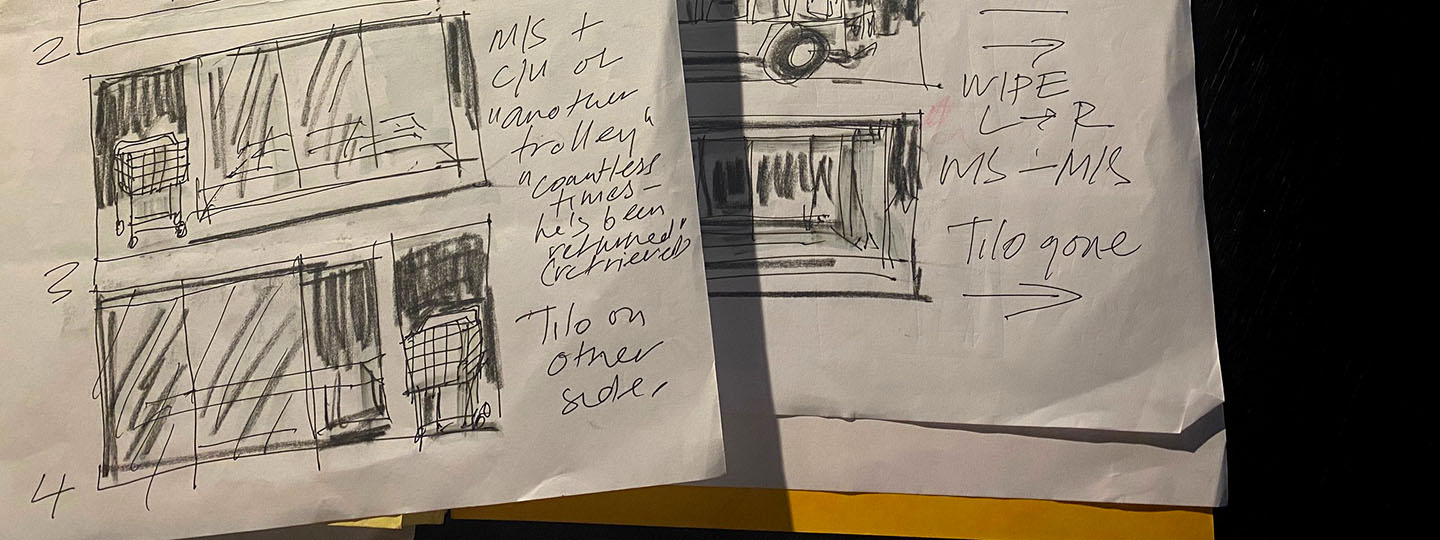 2
M/S +
C/U of
"another
trolley"
"countless
times –
he's been
returned"
(retrieved)
3
Tilo on
other
side.
4
WIPE
L → R
MS – M/S
Tilo gone